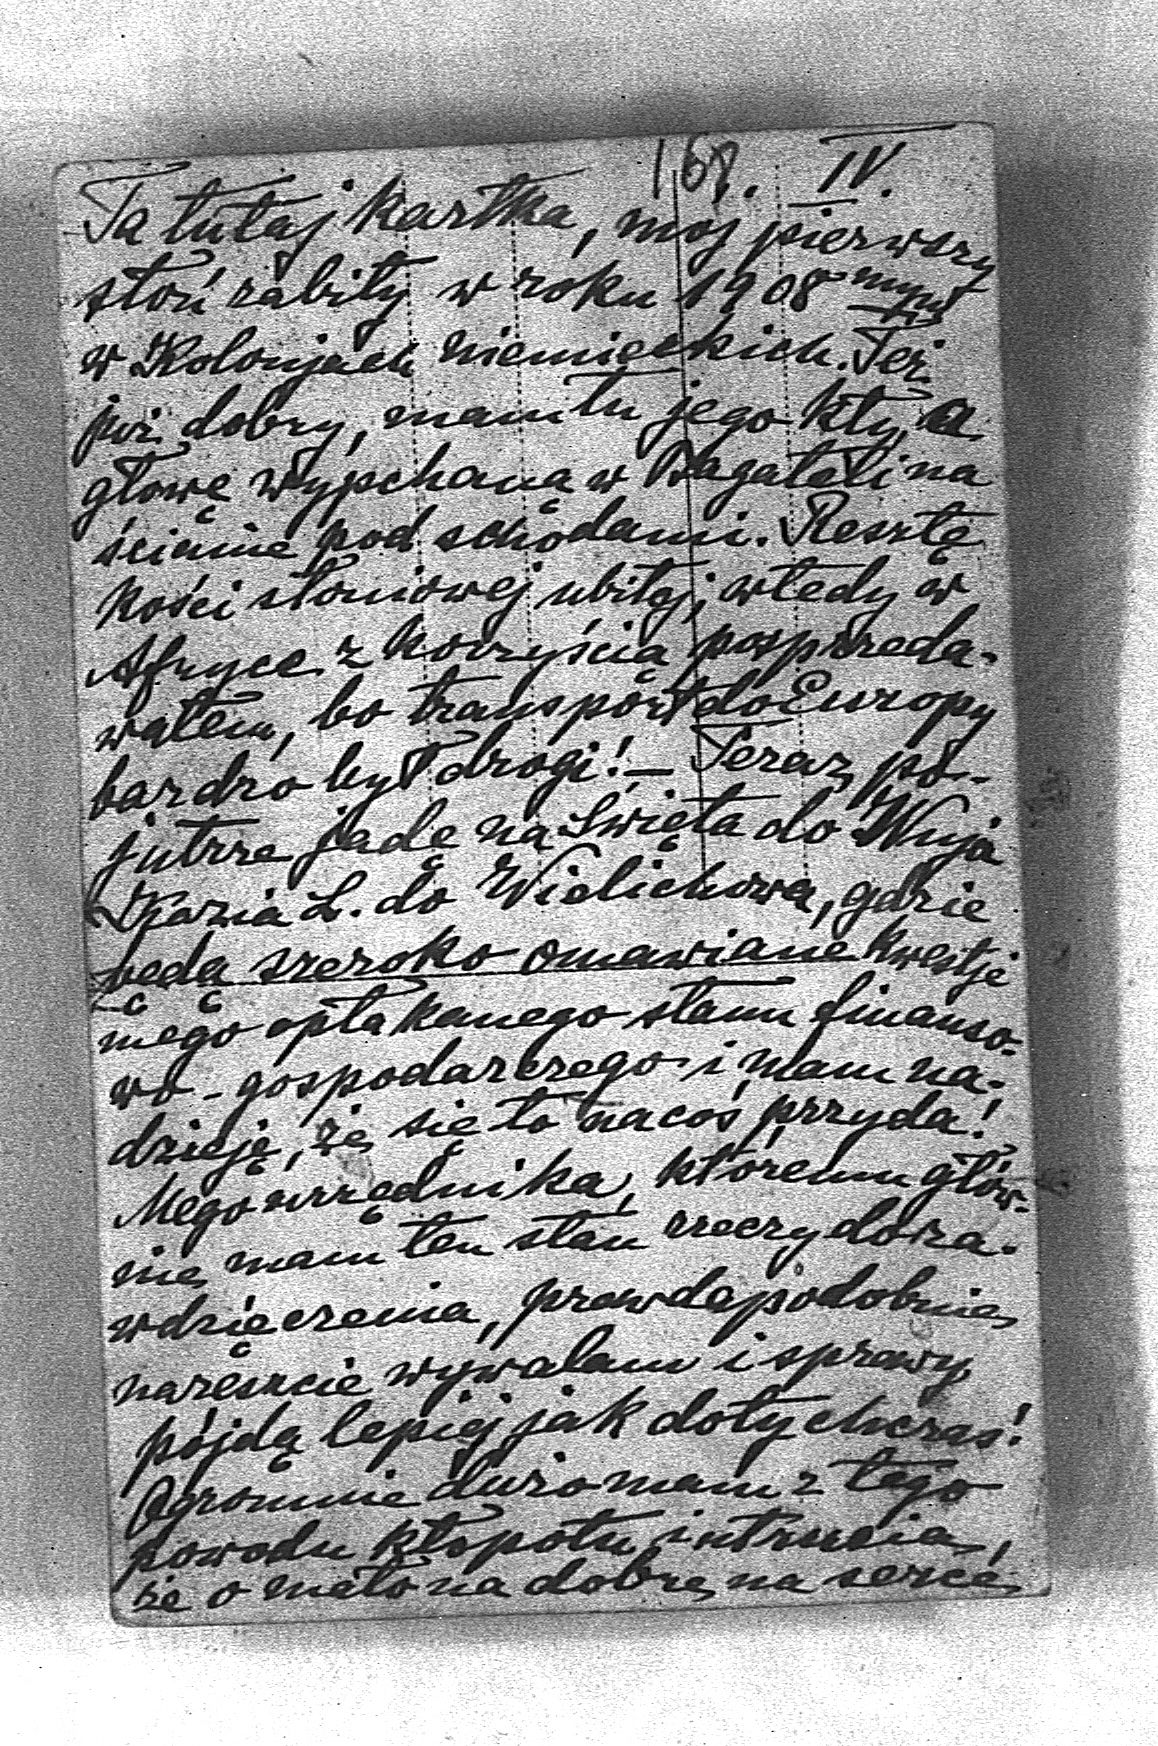 168. IV.
Ta tutaj kartka, mój pierwszy
słoń zabity w roku 1908 mym
w Kolonjach niemieckich. Też
już dobry, mam tu jego kły, a
głowę wypchaną w Bagateli na
ścianie pod schodami. Resztę
kości słoniowej ubitej, wtedy w
Afryce z korzyścią posprzeda-
wałem, bo transport do Europy
bardzo był drogi! — Teraz, po-
jutrze jadę na Święta do Wuja
Kazia L. do Wielichowa, gdzie
będą szeroko omawiane kwestje
mego opłakanego stanu finanso-
wo-gospodarczego i mam na-
dzieję, że się to na coś przyda!
Mego urzędnika, któremu głów-
nie mam ten stan rzeczy do za-
wdzięczenia, prawdopodobnie
nareszcie wywalam i sprawy
pójdą lepiej jak dotychczas!
Ogromnie dużo mam z tego
powodu kłopotu i utrucia,
że o mało na dobre na serce